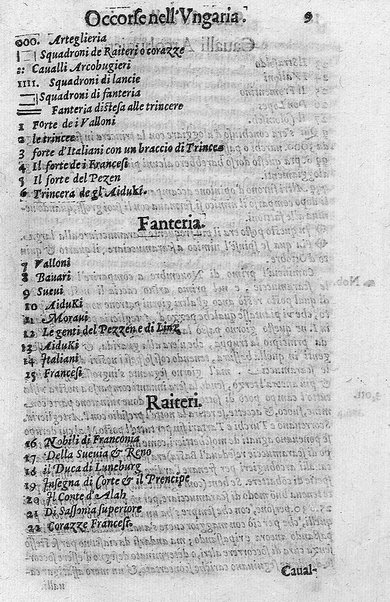 Occorse nell'Vngaria. 9
000. Arteglieria
Squadroni de Raiteri o corazze
Caualli Arcobugieri
1111. Squadroni di lancie
Squadroni di fanteria
Fanteria distesa alle trincere
1 Forte de i Valloni
2 le trincee
3 forte d'Italiani con un braccio di Trincea
4 Il forte de i Francesi
5 Il forte del Pezen
6 Trincera de gl'Aiduki.
Fanteria.
7 Valloni
8 Bauari
9 Sueui
10 Aiduki
11 Moraui
12 Le genti del Pezzen e di Linz
13 Aiduki
14 Italiani
15 Francesi
Raiteri.
16 Nobili di Franconia
17 Della Sueuia & Reno
18 il Duca di Luneburg
19 Insegna di Corte & il Prencipe
20 Il Conte d'Alah
21 Di Sassonia superiore
22 Corazze Francesi.
Caual-